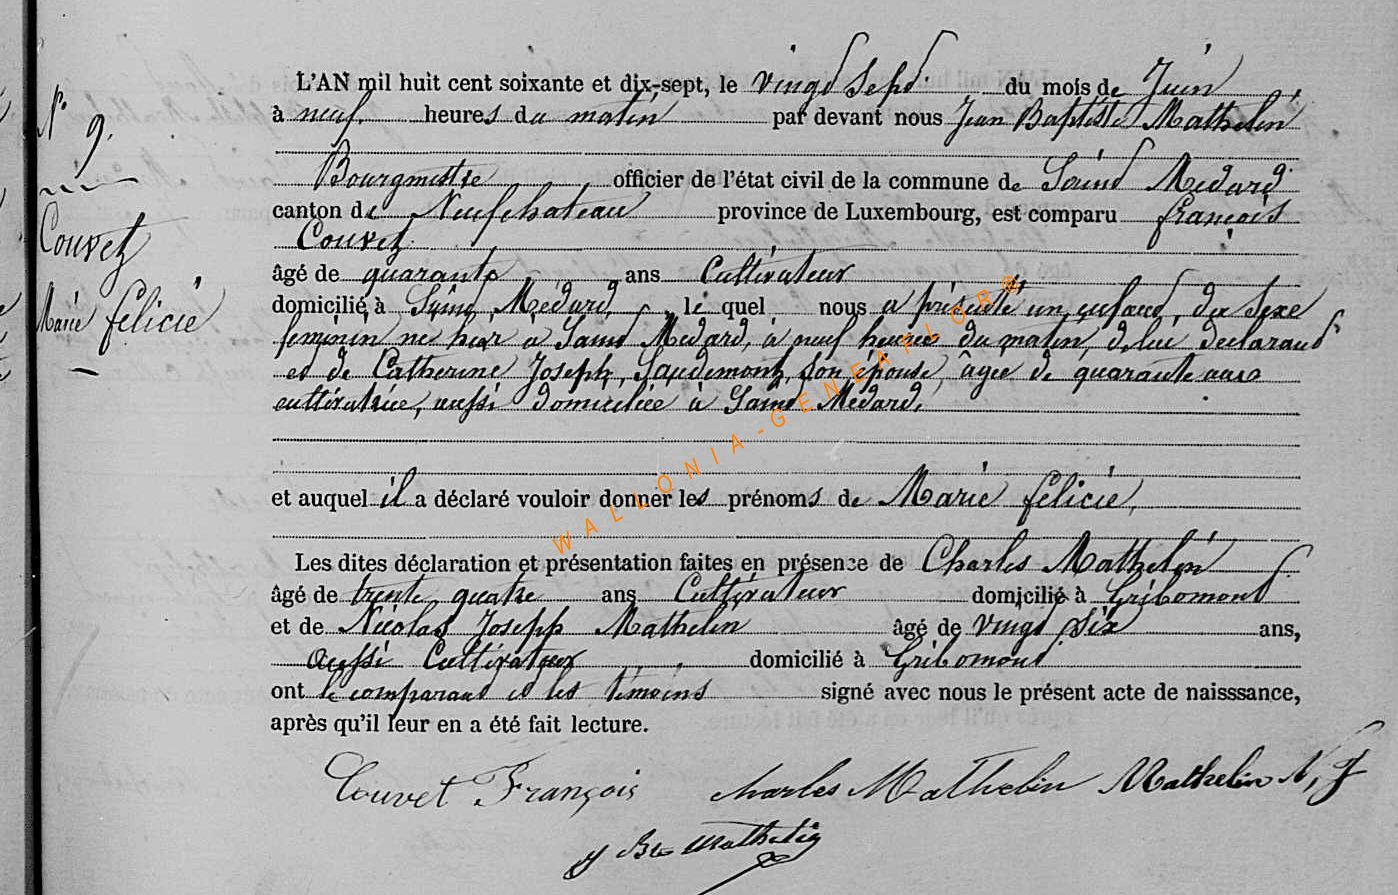 N° 9.
Couvet
Marie Félicie
L'AN mil huit cent soixante et dix-sept, le vingt sept du mois de Juin
à neuf heures du matin par devant nous Jean Baptiste Mathelin
Bourgmestre officier de l'état civil de la commune de Saint Médard
canton de Neufchateau province de Luxembourg, est comparu françois
Couvet
âgé de quarante ans Cultivateur
domicilié à Saint Médard, le quel nous a présenté un enfant, du sexe
feminin né hier à Saint Médard, à neuf heures du matin, de lui déclarant
et de Catherine Joseph, Saudemont, son épouse, âgée de quarante ans
cultivatrice, aussi domiciliée à Saint Médard,
et auquel il a déclaré vouloir donner les prénoms de Marie félicie,
Les dites déclaration et présentation faites en présence de Charles Mathelin
âgé de trente quatre ans Cultivateur domicilié à Gribomont
et de Nicolas Joseph Mathelin âgé de vingt six ans,
aussi Cultivateur domicilié à Gribomont
ont le comparant et les témoins signé avec nous le présent acte de naisssance,
après qu'il leur en a été fait lecture.
Couvet François Charles Mathelin Mathelin N, J
J Bte Mathelin
WALLONIA-GENEAFLOR®